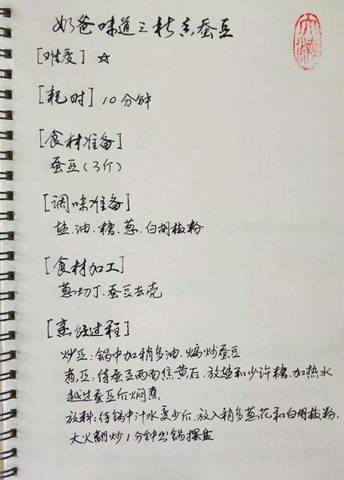 奶爸味道之秋意蚕豆
[难度] ☆
[耗时] 10分钟
[食材准备]
蚕豆(3斤)
[调味准备]
盐.油.糖.葱.白胡椒粉
[食材加工]
葱切丁.蚕豆去壳
[烹饪过程]
炒豆:锅中加稍多油.煸炒蚕豆
煮豆:待蚕豆两面焦黄后.放盐和少许糖.加热水
越过蚕豆后焖煮.
放料:待锅中汁水变少后.放入稍多葱花和白胡椒粉.
大火翻炒1分钟出锅摆盘